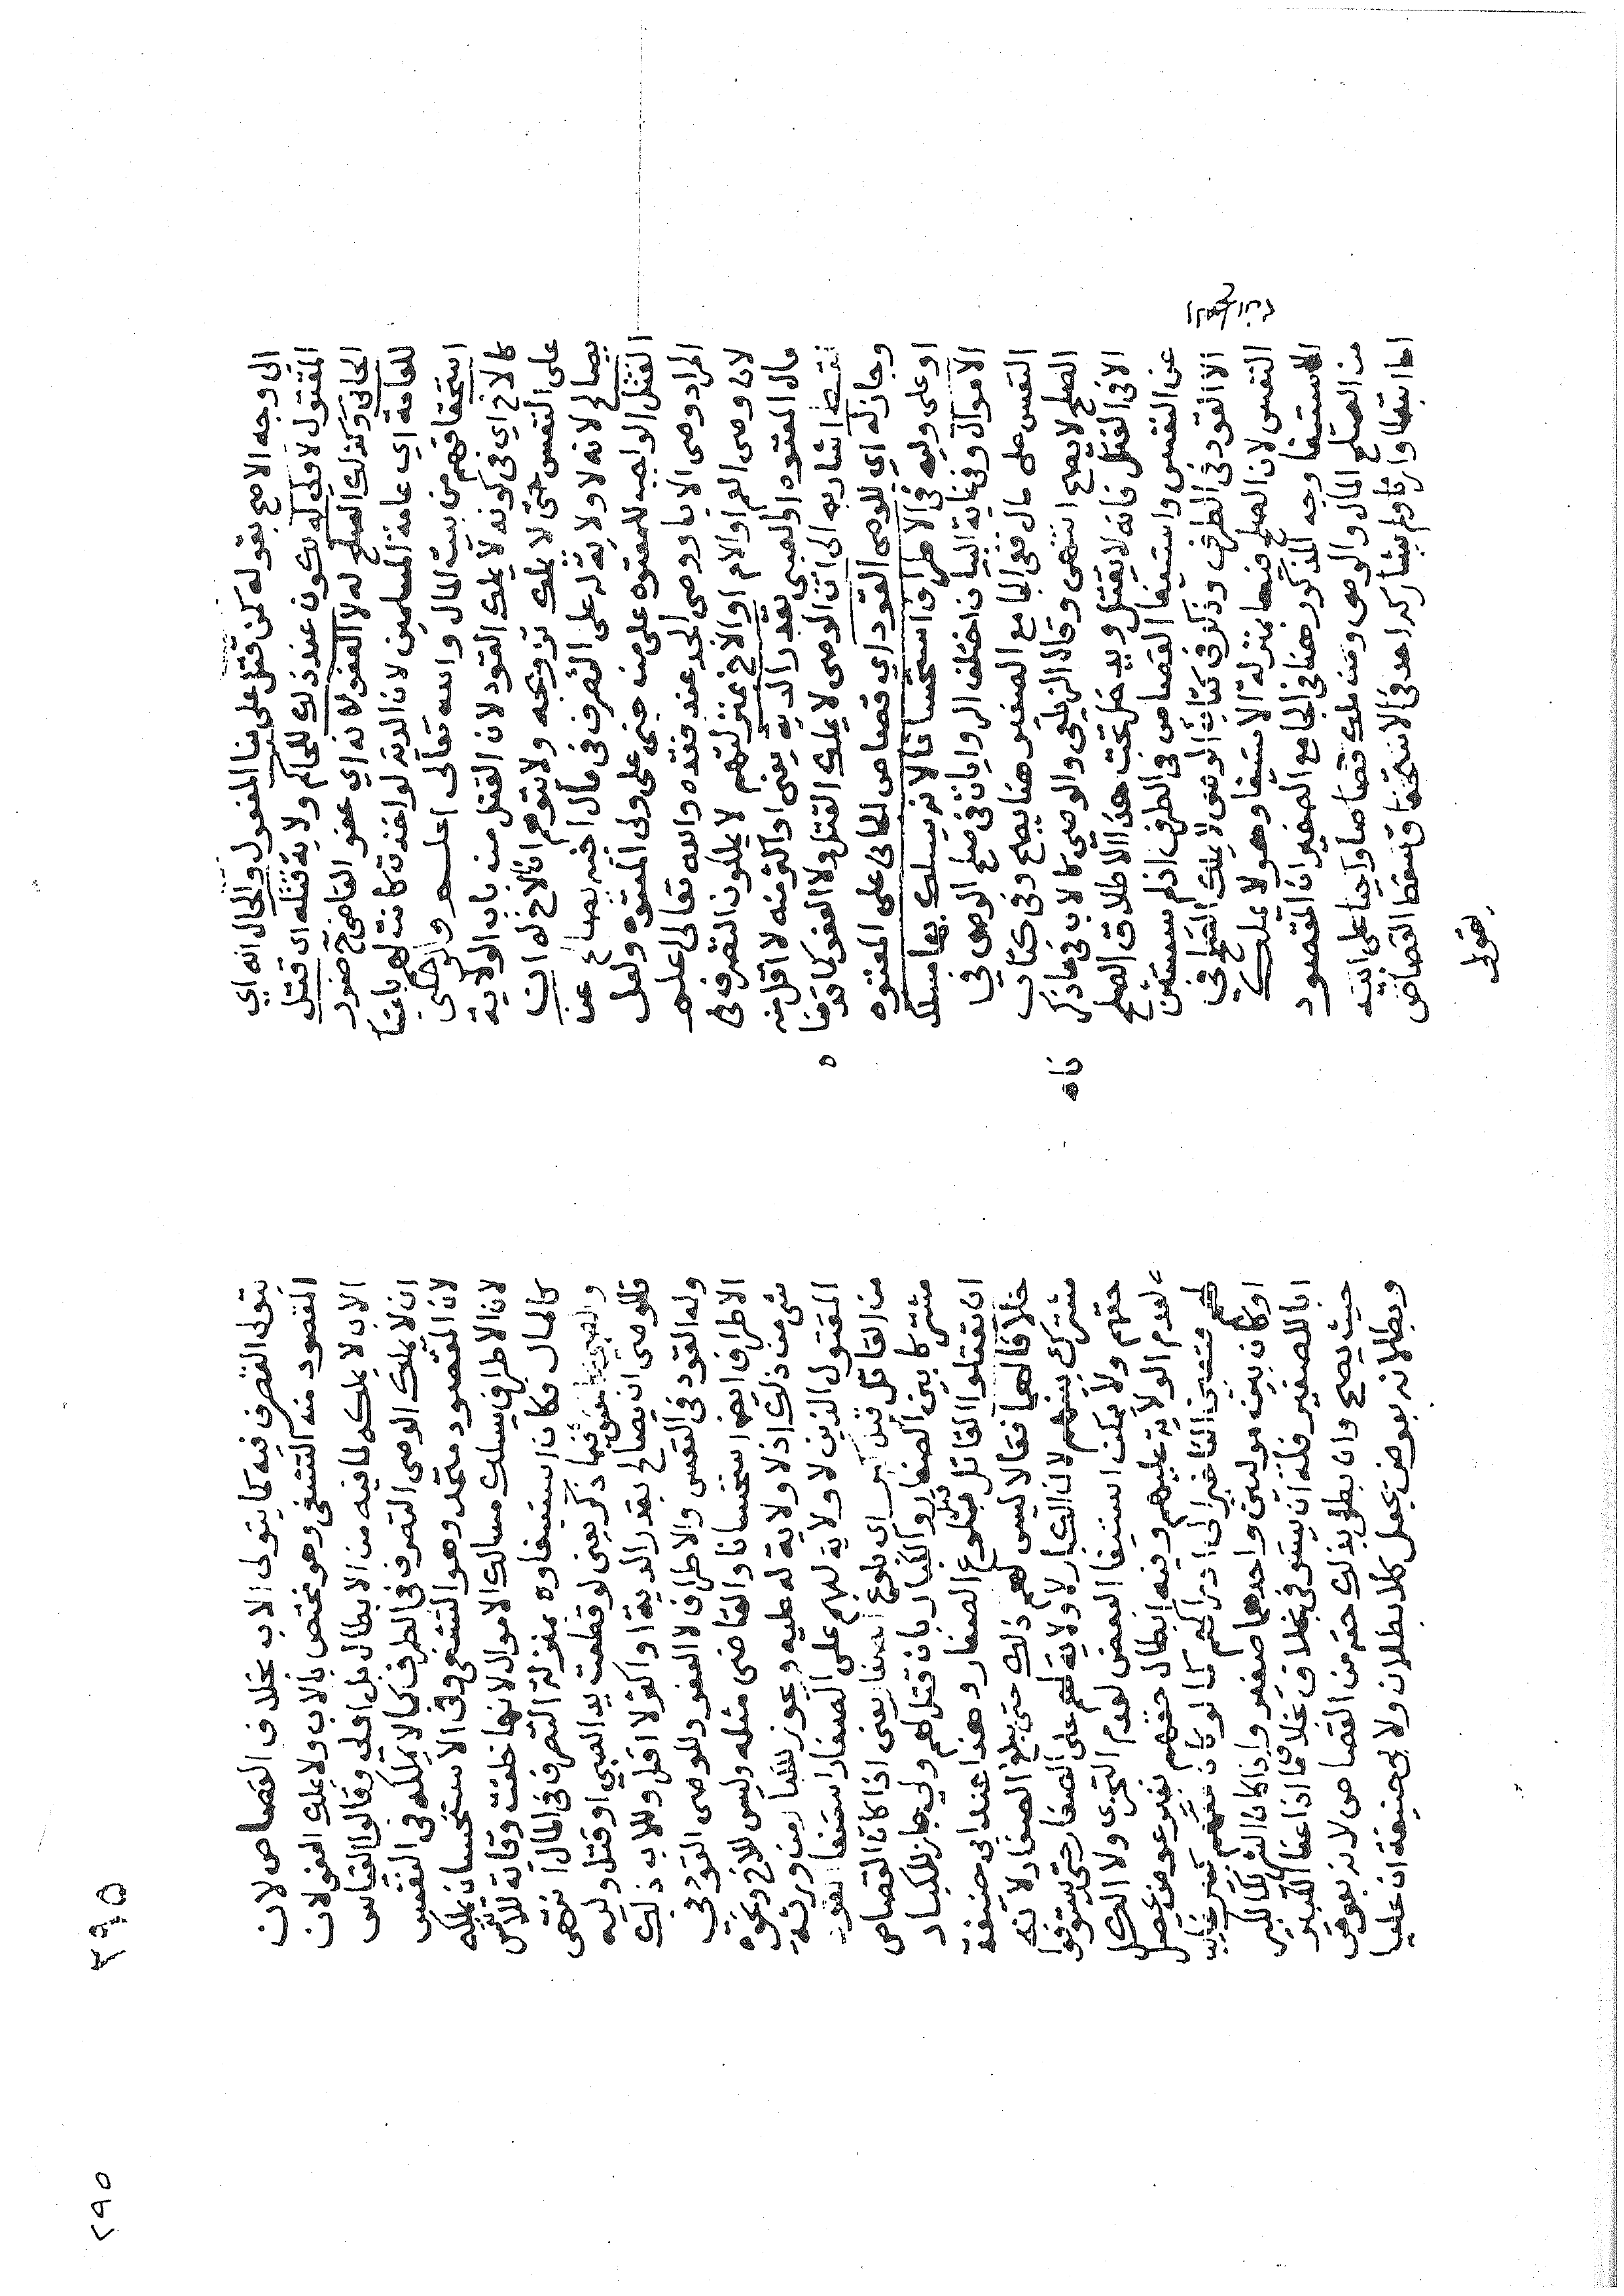 الى وجه الاصح بقوله كمن قتل على بنا المفعول والحال انه اي
المقتول لا ولي له يكون عند ذلك للحاكم ولاية قتله اى قتل
الجاني وكذلك الصلح له لا العفو لانه اي عفو القاضي ح ضرر
للعامة اي عامة المسلمين لان الدية لو اخذت كانت لهم باعتبا
استحقاقهم من بيت المال والله تعالى اعلم والوصي
كالاخ اي في كونه لا يملك القود لان القتل من باب الولاية
على النفس حتى لا يملك تزويجه ولا يتوهم ان الاخ له ان
يصالح لانه لا ولاية له على التصرف في مال اخيه يصالح عن
القتل الواجب للمعتوه على من جنى على ولي المعتوه ولعل
المراد وصى الاب او وصى الجد عند فقده والله تعالى اعلم
لان وصى العم او الام او الاخ بمنزلتهم لا يملكون التصرف في
مال المعتوه او الصبي بقدر الدية يعني او اكثر منه لا اقل منه
فقط اشار به الى ان الوصى لا يملك القتل ولا العفو كما قدمنا
وجاز له اي للوصى القود اي قصاص الجاني على المعتوه
او على وليه في الاطراف استحسانا لانه يسلك بها مسلك
الاموال وفي غاية البيان اختلف الروايات في صلح الوصى في
النفس على مال ففي الجامع الصغير هنا يصح وفي كتاب
الصلح لا يصح انتهى وقال الزيلعي والوصي كالاب في ما ذكر
الا في القتل فانه لا يقتل ويدخل تحت هذا الاطلاق الصلح
عن النفس واستيفا القصاص في الطرف اذ لم يستثن
الا القود في الطرف وذكر في كتاب الصلح ان الوصى لا يملك الصلح في
النفس لان الصلح فيها بمنزلة الاستيفا وهو لا يملك
الاستيفا وجه المذكور هنا في الجامع الصغير ان المقصود
من الصلح المال والوصى ومن ملك قصاصا واجبا على ابنه
اما ابتدا او ارثا ولم يشاركه احد في الاستحقاق سقط القصاص
بقوله
٢٩٥
٢٩٥
يتولى التصرف فيه كما يتولى الاب بخلاف القصاص لان
المقصود منه التشفى وهو مختص بالاب ولا يملك العفو لان
الاب لا يملكه لما فيه من الابطال بل اولى وقالوا القياس
ان لا يملك الوصى التصرف في الطرف كما لا يملكه في النفس
لان المقصود متحد وهو التشفى وفي الاستحسان يملكه
لان الاطراف يسلك مسالك الاموال لانها خلقت وقاية للانفس
كالمال فكان استيفاوه بمنزلة التصرف في المال انتهى
والصبي كالمعتوه فيما ذكر يعنى لو قطعت يد الصبي او قتل وليه
فللوصى ان يصالح بقدر الدية او اكثر لا اقل وللاب ذلك
وله القود في النفس والاطراف لا العفو وللوصى القود في
الاطراف ايضا استحسانا والقاضى مثله وليس للاخ ونحوه
شى من ذلك اذ لا ولاية له عليه ويجوز للكبار من ورثة
المقتول الذين لا ولاية لهم على الصغار استيفا القود
من القاتل قبل كبر اى بلوغ الصغار يعنى اذا كان القصاص
مشتركا بين الصغار والكبار بان قتل لهم ولي جاز للكبار
ان يقتلوا القاتل قبل بلوغ الصغار وهذا عند ابى حنيفة
خلافا لهما فقالا ليس لهم ذلك حتى يبلغ الصغار لانه
مشترك بينهم لان الكبار لا ولاية لهم على الصغار حتى يستوفوا
حقهم ولا يمكن استيفا البعض لعدم التجزى ولا الكل
لعدم الولاية عليهم وفيه ابطال حقهم بغير عوض يحصل
لهم فتعين التاخير الى ادراكهم كما لو كان فيهم كبير غايب
او كان بين موليين واحدهما صغير واذا كان الشريك الكبير
ابا للصغير فله ان يستوفى بخلاف ما اذا عفا الكبير
حيث يصح وان بطل بذلك حقه من القصاص لانه بعوض
وبطلانه بعوض يجعل كلا بطلان ولابى حنيفة ان عليا